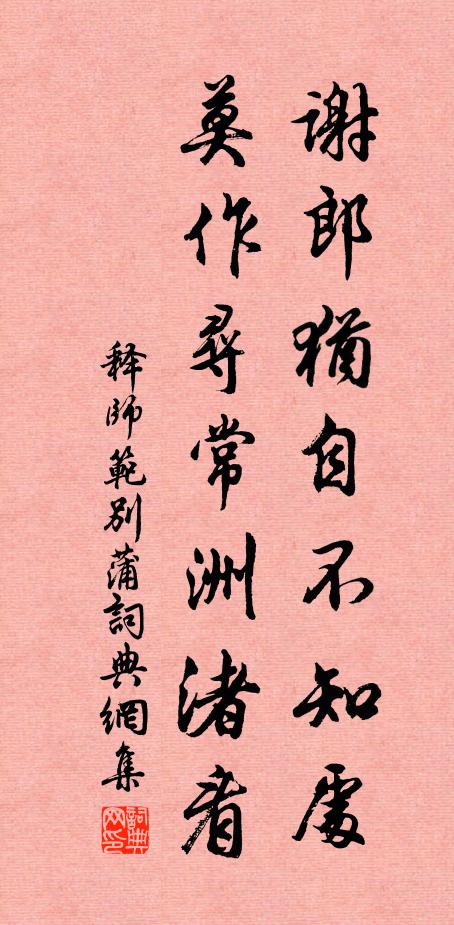 謝郎猶自不知處
莫作尋常洲渚看
释師範別蒲詞典網集
詞典网印